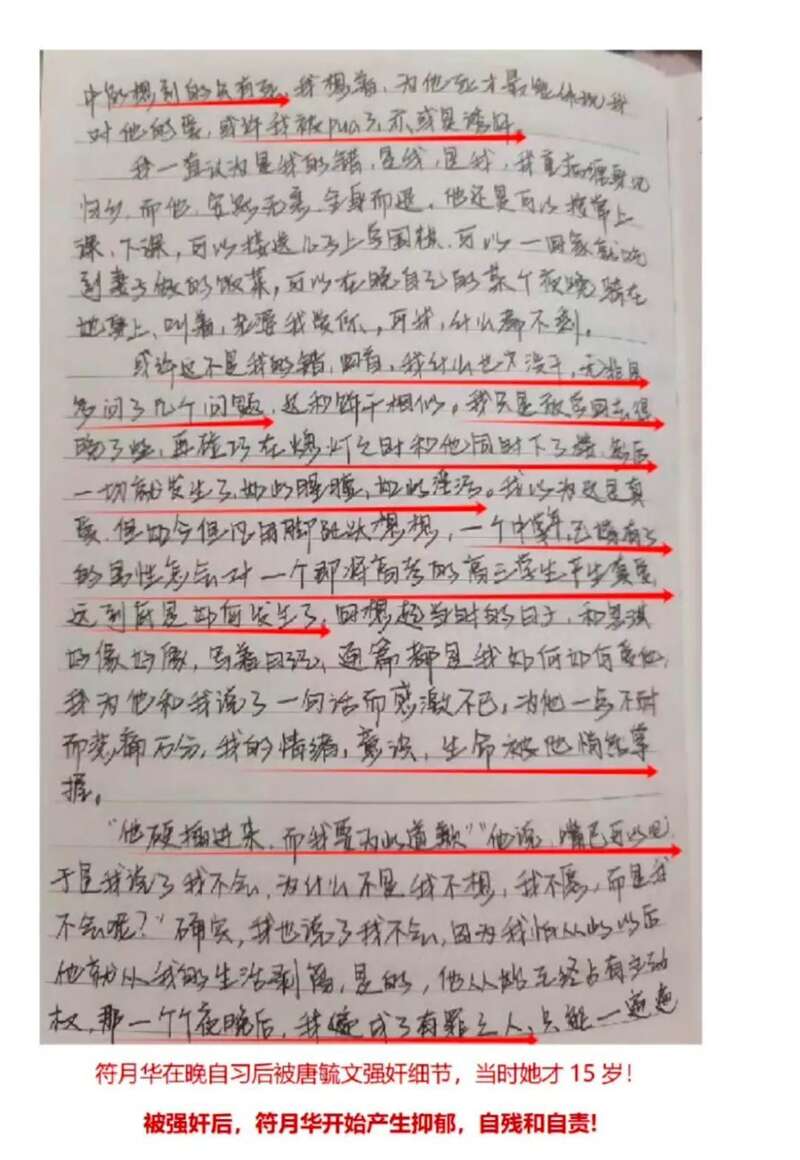 中能想到的只有死，我想着，为他死才最能体现我
对他的爱，或许我被pua了，亦或是洗好。
我一直认为是我的错，是我，是我，我
归乡，而他，安然无恙，全身而退，他还是可以接常上
课、下课，可以接送儿子上学围棋，可以一回家就吃
到妻子做的饭菜，可以在晚自习的某个夜晚骑在
她身上、叫着，老婆我爱你，可我，什么都不剩。
或许这不是我的错，回首，我什么也没干，无非是
多问了几个问题，这和饼干相似。我只是放学回去得
晚了些，再碰巧在熄灯之时和他同时下了楼，然后
一切就发生了，如此腥臊，如此淫污。我以为这是真
爱，但如今但凡用脚趾头想想，一个中年已婚有子
的男性怎会对一个即将高考的高三学生产生真爱，
这到底是如何发生了。回想起当时的日子，和思琪
好像好像，写着日记，通篇都是我如何如何爱他，
我为他和我说了一句话而感激不已，为他一与不对
而悲痛万分，我的情绪，意识，生命被他悄然掌
握。
“他硬插进来，而我要为此道歉”“他说，嘴巴可以吧，
于是我说了我不会，为什么不是我不想，我不愿，而是我
不会呢？”确实，我也说了我不会，因为我怕从此以后
他就从我的生活剥离，是的，他从始至终占有主动
权，那一个个夜晚后，我便成了有罪之人，只能一遍遍
符月华在晚自习后被唐毓文强奸细节，当时她才 15 岁！
被强奸后，符月华开始产生抑郁，自残和自责!